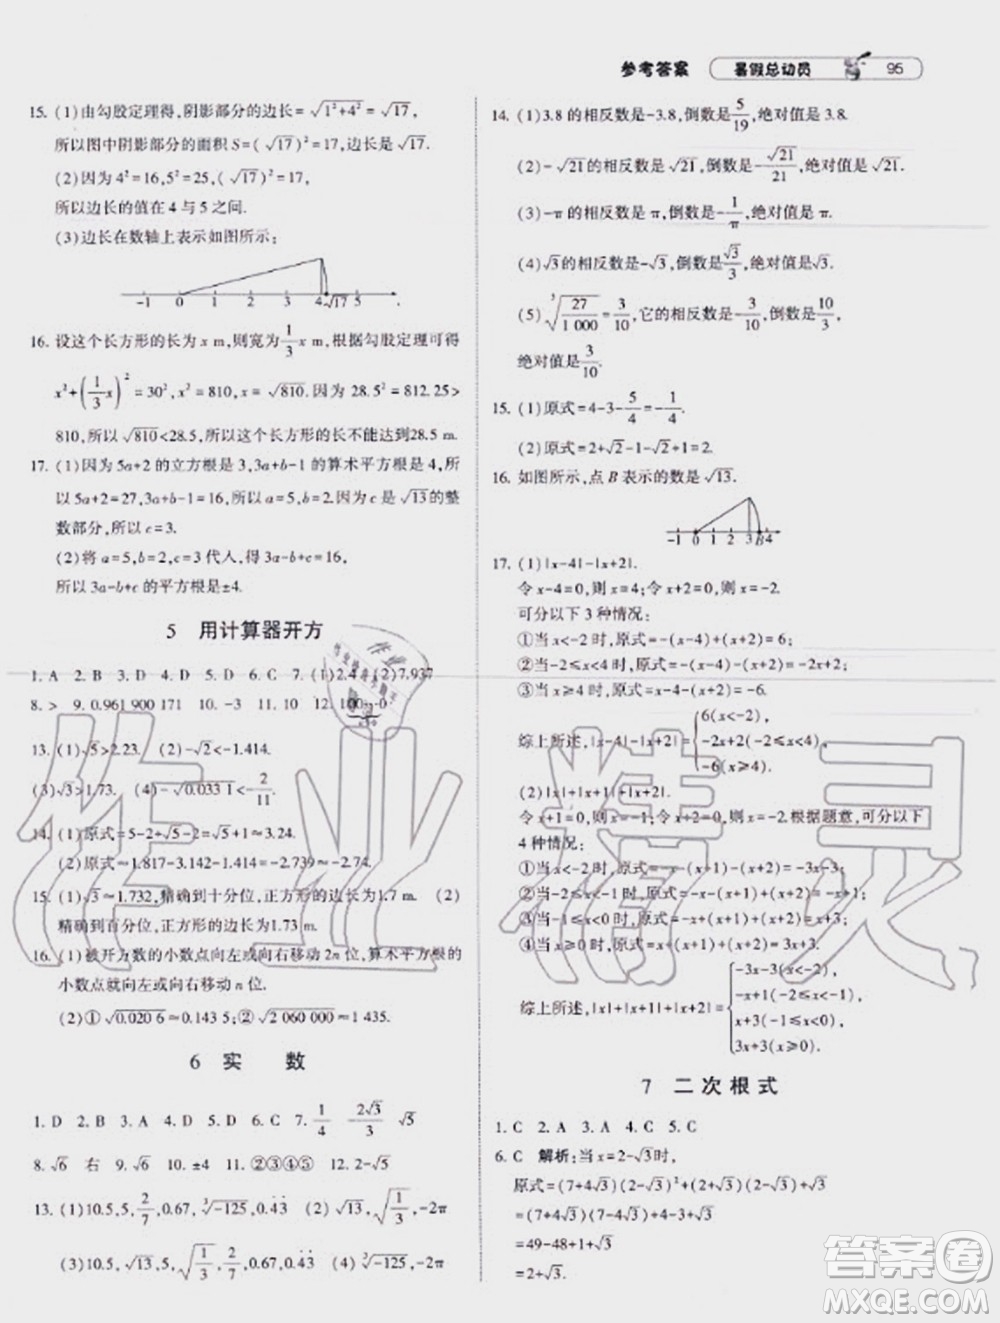 参考答案 暑假总动员 95
15. (1)由勾股定理得,阴影部分的边长=√(1²+4²)=√17,
所以图中阴影部分的面积 S=(√17)²=17.
(2)因为 4²=16,5²=25,(√17)²=17,
所以边长的值在 4 与 5 之间.
(3)边长在数轴上表示如图所示:
-1 0 1 2 3 4 √17 5
16. 设这个长方形的长为 x m,则宽为 1/3 x m,根据勾股定理可得
x²+(1/3 x)²=30²,x²=810,x=√810.因为 28.5²=812.25>
810,所以√810<28.5,所以这个长方形的长不能达到28.5 m.
17. (1)因为 5a+2 的立方根是 3,3a+b-1 的算术平方根是 4,所
以 5a+2=27,3a+b-1=16,所以a=5,b=2.因为 c 是√13的整
数部分,所以 c=3.
(2)将 a=5,b=2,c=3 代人,得 3a-b+c=16,
所以 3a-b+c 的平方根是±4.
5 用计算器开方
1. A 2. B 3. A 4. D 5. D 6. D 7. (1)2.4 (2)7.937
8. > 9. 0.961 900 171 10. -3 11. 10 12.
13. (1)√5>2.23. (2)-√2<-1.414.
(3)√3>1.73. (4)-√0.033 1<-2/11.
14. (1)原式=5-2+√5-2=√5+1.
(2)原式≈1.817-3.142-1.414=-2.739≈-2.74.
15. (1)√3≈1.732,精确到十分位,正方形的边长为1.7 m. (2)
精确到百分位,正方形的边长为1.73 m.
16. (1)被开方数的小数点向左或向右移动2n位,算术平方根的
小数点就向左或向右移动n位.
(2)①√0.020 6≈0.143 5;②√2 060 000≈1 435.
6 实 数
1. D 2. B 3. A 4. D 5. D 6. D 7. 1/4 2√3/3 √5
8. √6 右 9. √6 10. ±√2 11. ②③④⑤ 12. 2-√5
13. (1)10.5,5,2/7,0.67,∛-125,0.4̇3̇ (2)√13,√(1/3),-2π
(3)10.5,5,√(1/3),2/7,0.67,0.4̇3̇ (4)√13,∛-125,-2π
14. (1)3.8 的相反数是-3.8,倒数是5/19,绝对值是 3.8.
(2)-√21的相反数是√21,倒数是-√21/21,绝对值是√21.
(3)-π 的相反数是 π,倒数是-1/π,绝对值是 π.
(4)√3的相反数是-√3,倒数是√3/3,绝对值是√3.
(5)∛(27/1 000)=3/10,它的相反数是-3/10,倒数是10/3,
绝对值是3/10.
15. (1)原式=4-3-5/4=-1/4.
(2)原式=2+√2-1-√2=1.
16. 如图所示,点 B 表示的数是√13.
-1 0 1 2 3 B 4
17. (1)|x-4|-|x+2|.
令 x-4=0,则 x=4;令 x+2=0,则 x=-2.
可分以下 3 种情况:
①当 x<-2 时,原式=-(x-4)+(x+2)=6;
②当-2≤x<4 时,原式=-(x-4)-(x+2)=-2x+2;
③当 x≥4 时,原式=x-4-(x+2)=-6.
综上所述,|x-4|-|x+2|={6(x<-2),
-2x+2(-2≤x<4),
-6(x≥4).
(2)|x|+|x+1|+|x+2|.
令 x+1=0,则 x=-1;令 x+2=0,则 x=-2.根据题意,可分以下
4 种情况:
①当 x<-2 时,原式=-x-(x+1)-(x+2)=-3x-3;
②当-2≤x<-1 时,原式=-x-(x+1)+(x+2)=-x+1;
③当-1≤x<0 时,原式=-x+(x+1)+(x+2)=x+3;
④当 x≥0 时,原式=x+(x+1)+(x+2)=3x+3.
综上所述,|x|+|x+1|+|x+2|={-3x-3(x<-2),
-x+1(-2≤x<-1),
x+3(-1≤x<0),
3x+3(x≥0).
7 二次根式
1. C 2. A 3. A 4. C 5. C
6. C 解析:当 x=2-√3时,
原式=(7+4√3)(2-√3)²+(2+√3)(2-√3)+√3
=(7+4√3)(7-4√3)+(4-3)+√3
=49-48+1+√3
=2+√3.
作业精灵
答案圈
MXQE.COM